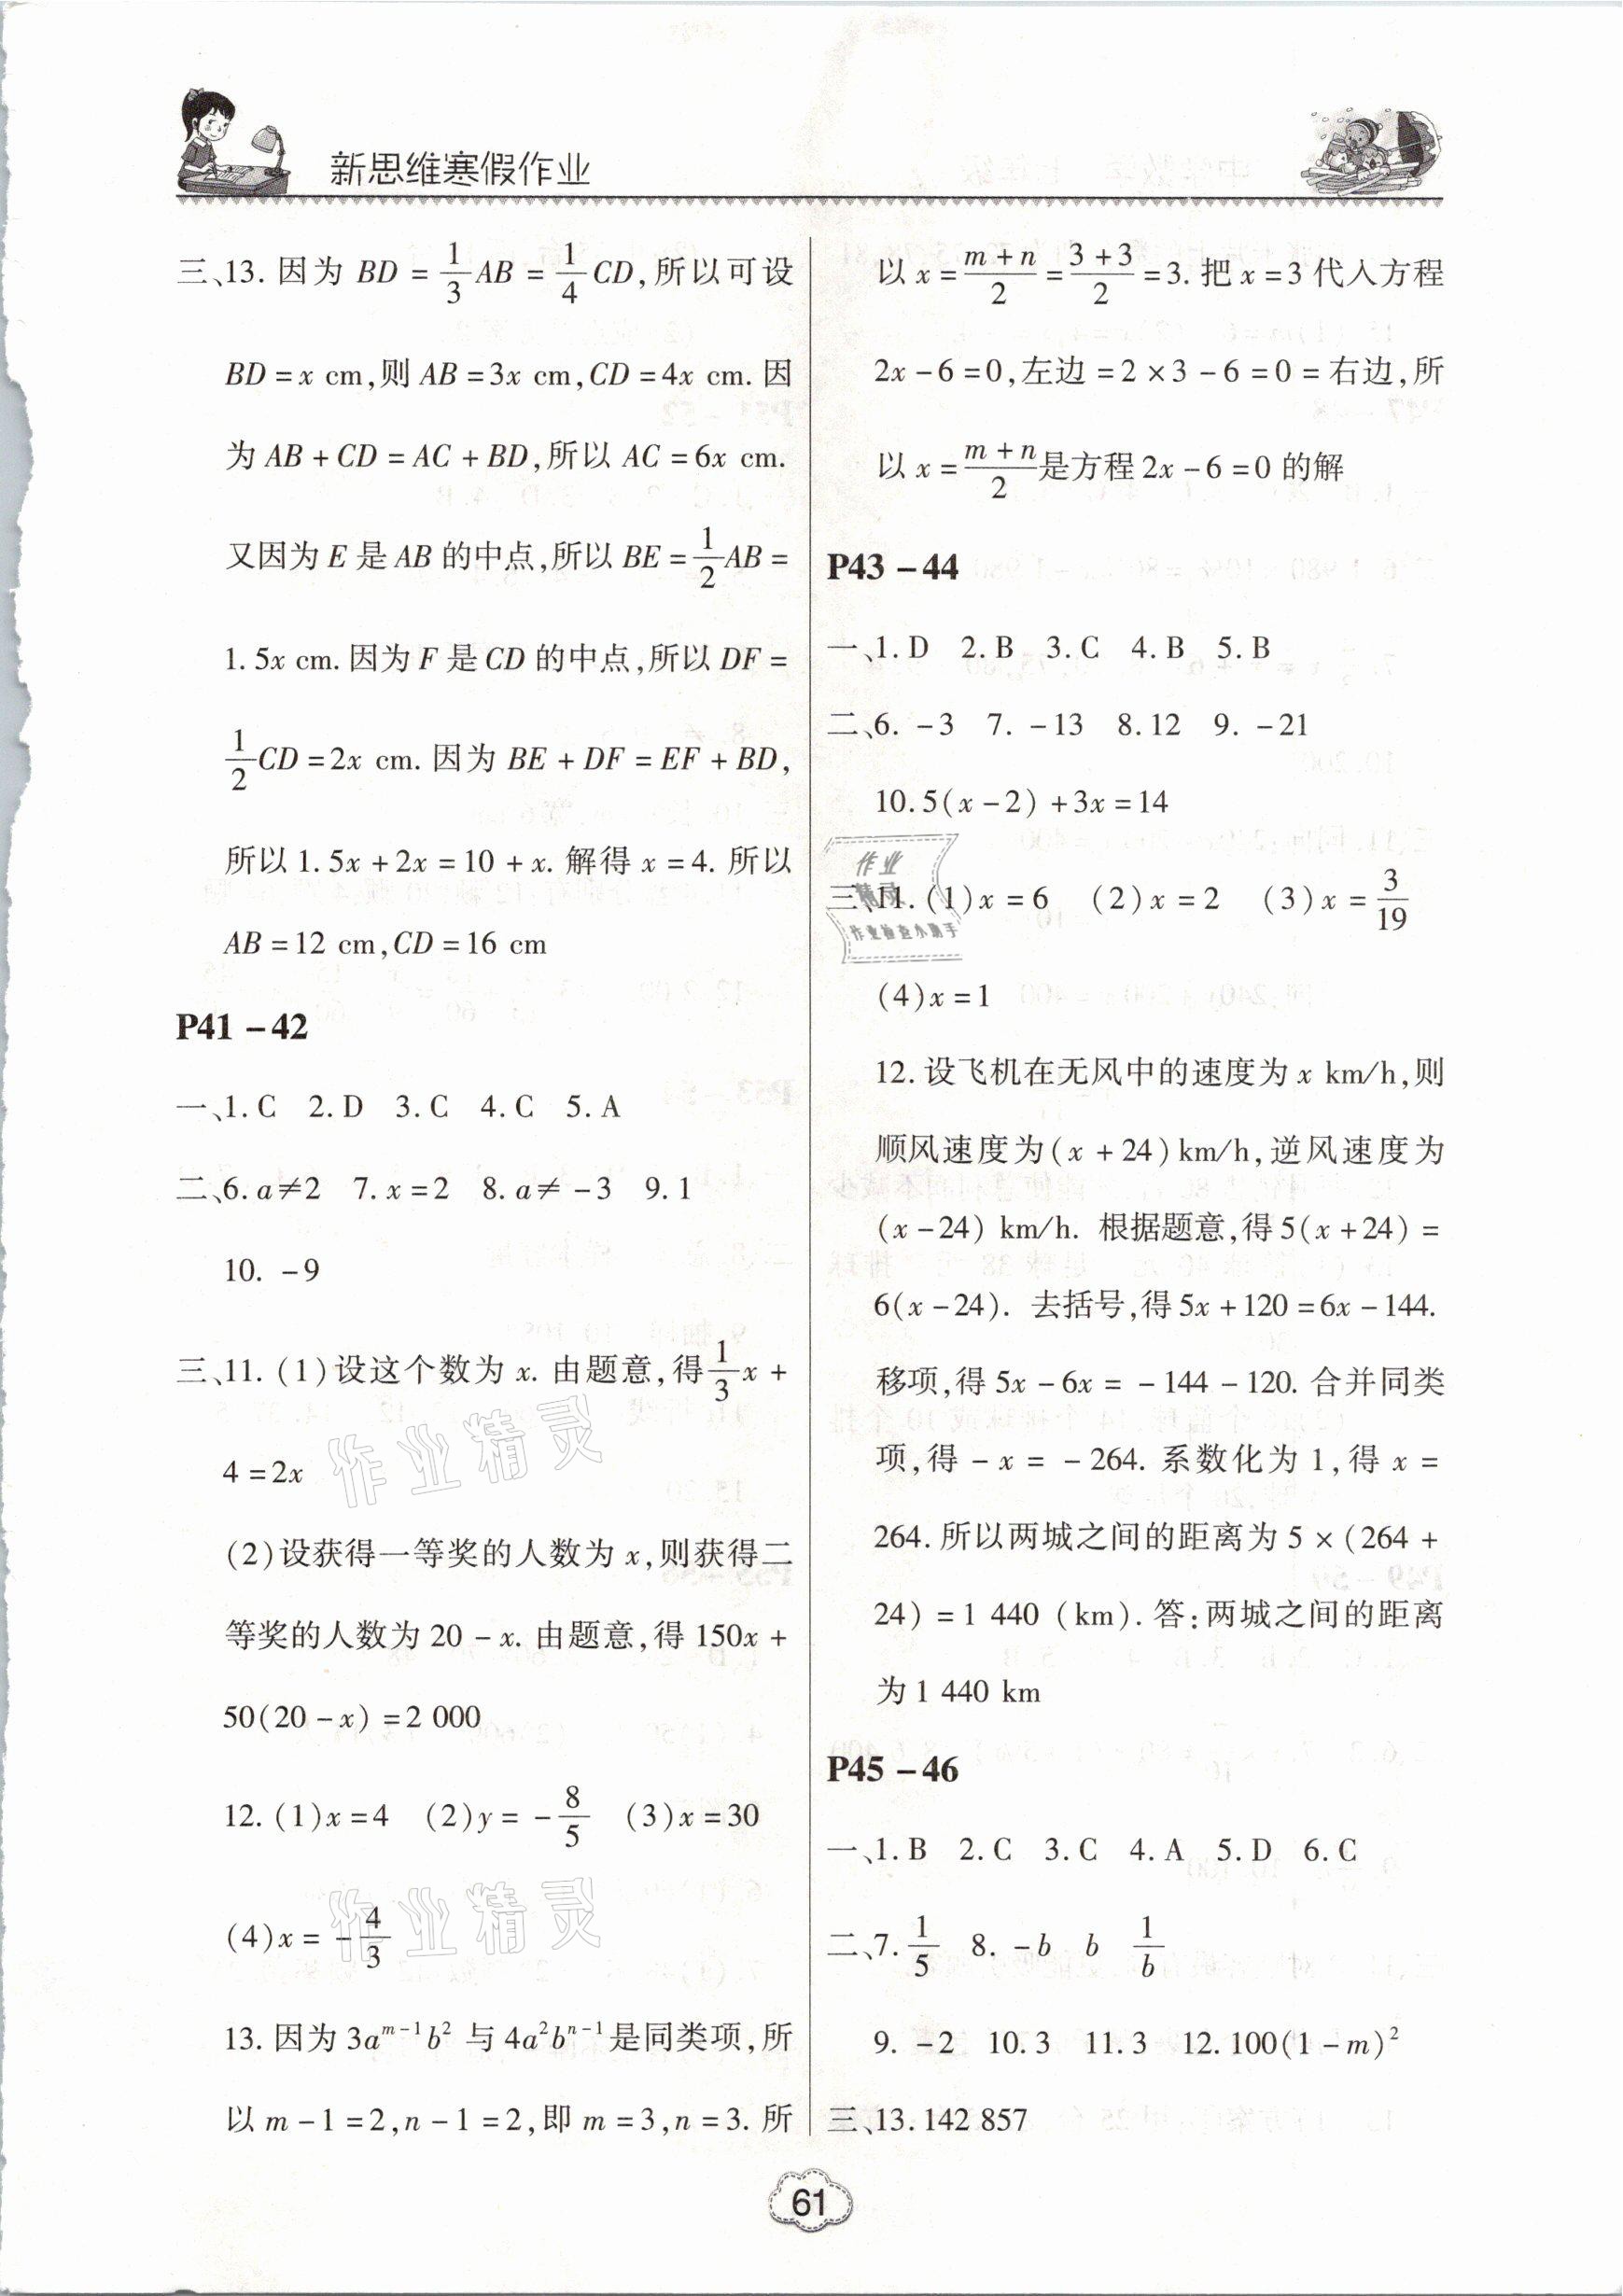 新思维寒假作业
三、13. 因为 BD = 1/3 AB = 1/4 CD,所以可设
BD = x cm,则 AB = 3x cm,CD = 4x cm. 因
为 AB + CD = AC + BD,所以 AC = 6x cm.
又因为 E 是 AB 的中点,所以 BE = 1/2 AB =
1.5x cm. 因为 F 是 CD 的中点,所以 DF =
1/2 CD = 2x cm. 因为 BE + DF = EF + BD,
所以 1.5x + 2x = 10 + x. 解得 x = 4. 所以
AB = 12 cm,CD = 16 cm
P41 - 42
一、1. C 2. D 3. C 4. C 5. A
二、6. a ≠ 2 7. x = 2 8. a ≠ - 3 9. 1
10. - 9
三、11. (1)设这个数为 x. 由题意,得 1/3 x +
4 = 2x
(2)设获得一等奖的人数为 x,则获得二
等奖的人数为 20 - x. 由题意,得 150x +
50(20 - x) = 2 000
12. (1)x = 4 (2)y = - 8/5 (3)x = 30
(4)x = - 4/3
13. 因为 3a^{m-1}b² 与 4a²b^{n-1} 是同类项,所
以 m - 1 = 2,n - 1 = 2,即 m = 3,n = 3. 所
以 x = (m + n)/2 = (3 + 3)/2 = 3. 把 x = 3 代入方程
2x - 6 = 0,左边 = 2 × 3 - 6 = 0 = 右边,所
以 x = (m + n)/2 是方程 2x - 6 = 0 的解
P43 - 44
一、1. D 2. B 3. C 4. B 5. B
二、6. - 3 7. - 13 8. 12 9. - 21
10. 5(x - 2) + 3x = 14
三、11. (1)x = 6 (2)x = 2 (3)x = 3/19
(4)x = 1
12. 设飞机在无风中的速度为 x km/h,则
顺风速度为(x + 24) km/h,逆风速度为
(x - 24) km/h. 根据题意,得 5(x + 24) =
6(x - 24). 去括号,得 5x + 120 = 6x - 144.
移项,得 5x - 6x = - 144 - 120. 合并同类
项,得 - x = - 264. 系数化为 1,得 x =
264. 所以两城之间的距离为 5 × (264 +
24) = 1 440 (km). 答:两城之间的距离
为 1 440 km
P45 - 46
一、1. B 2. C 3. C 4. A 5. D 6. C
二、7. 1/5 8. - b b 1/b
9. - 2 10. 3 11. 3 12. 100(1 - m)²
三、13. 142 857
61
作业
精灵
作业检查小助手
作业精灵
作业精灵